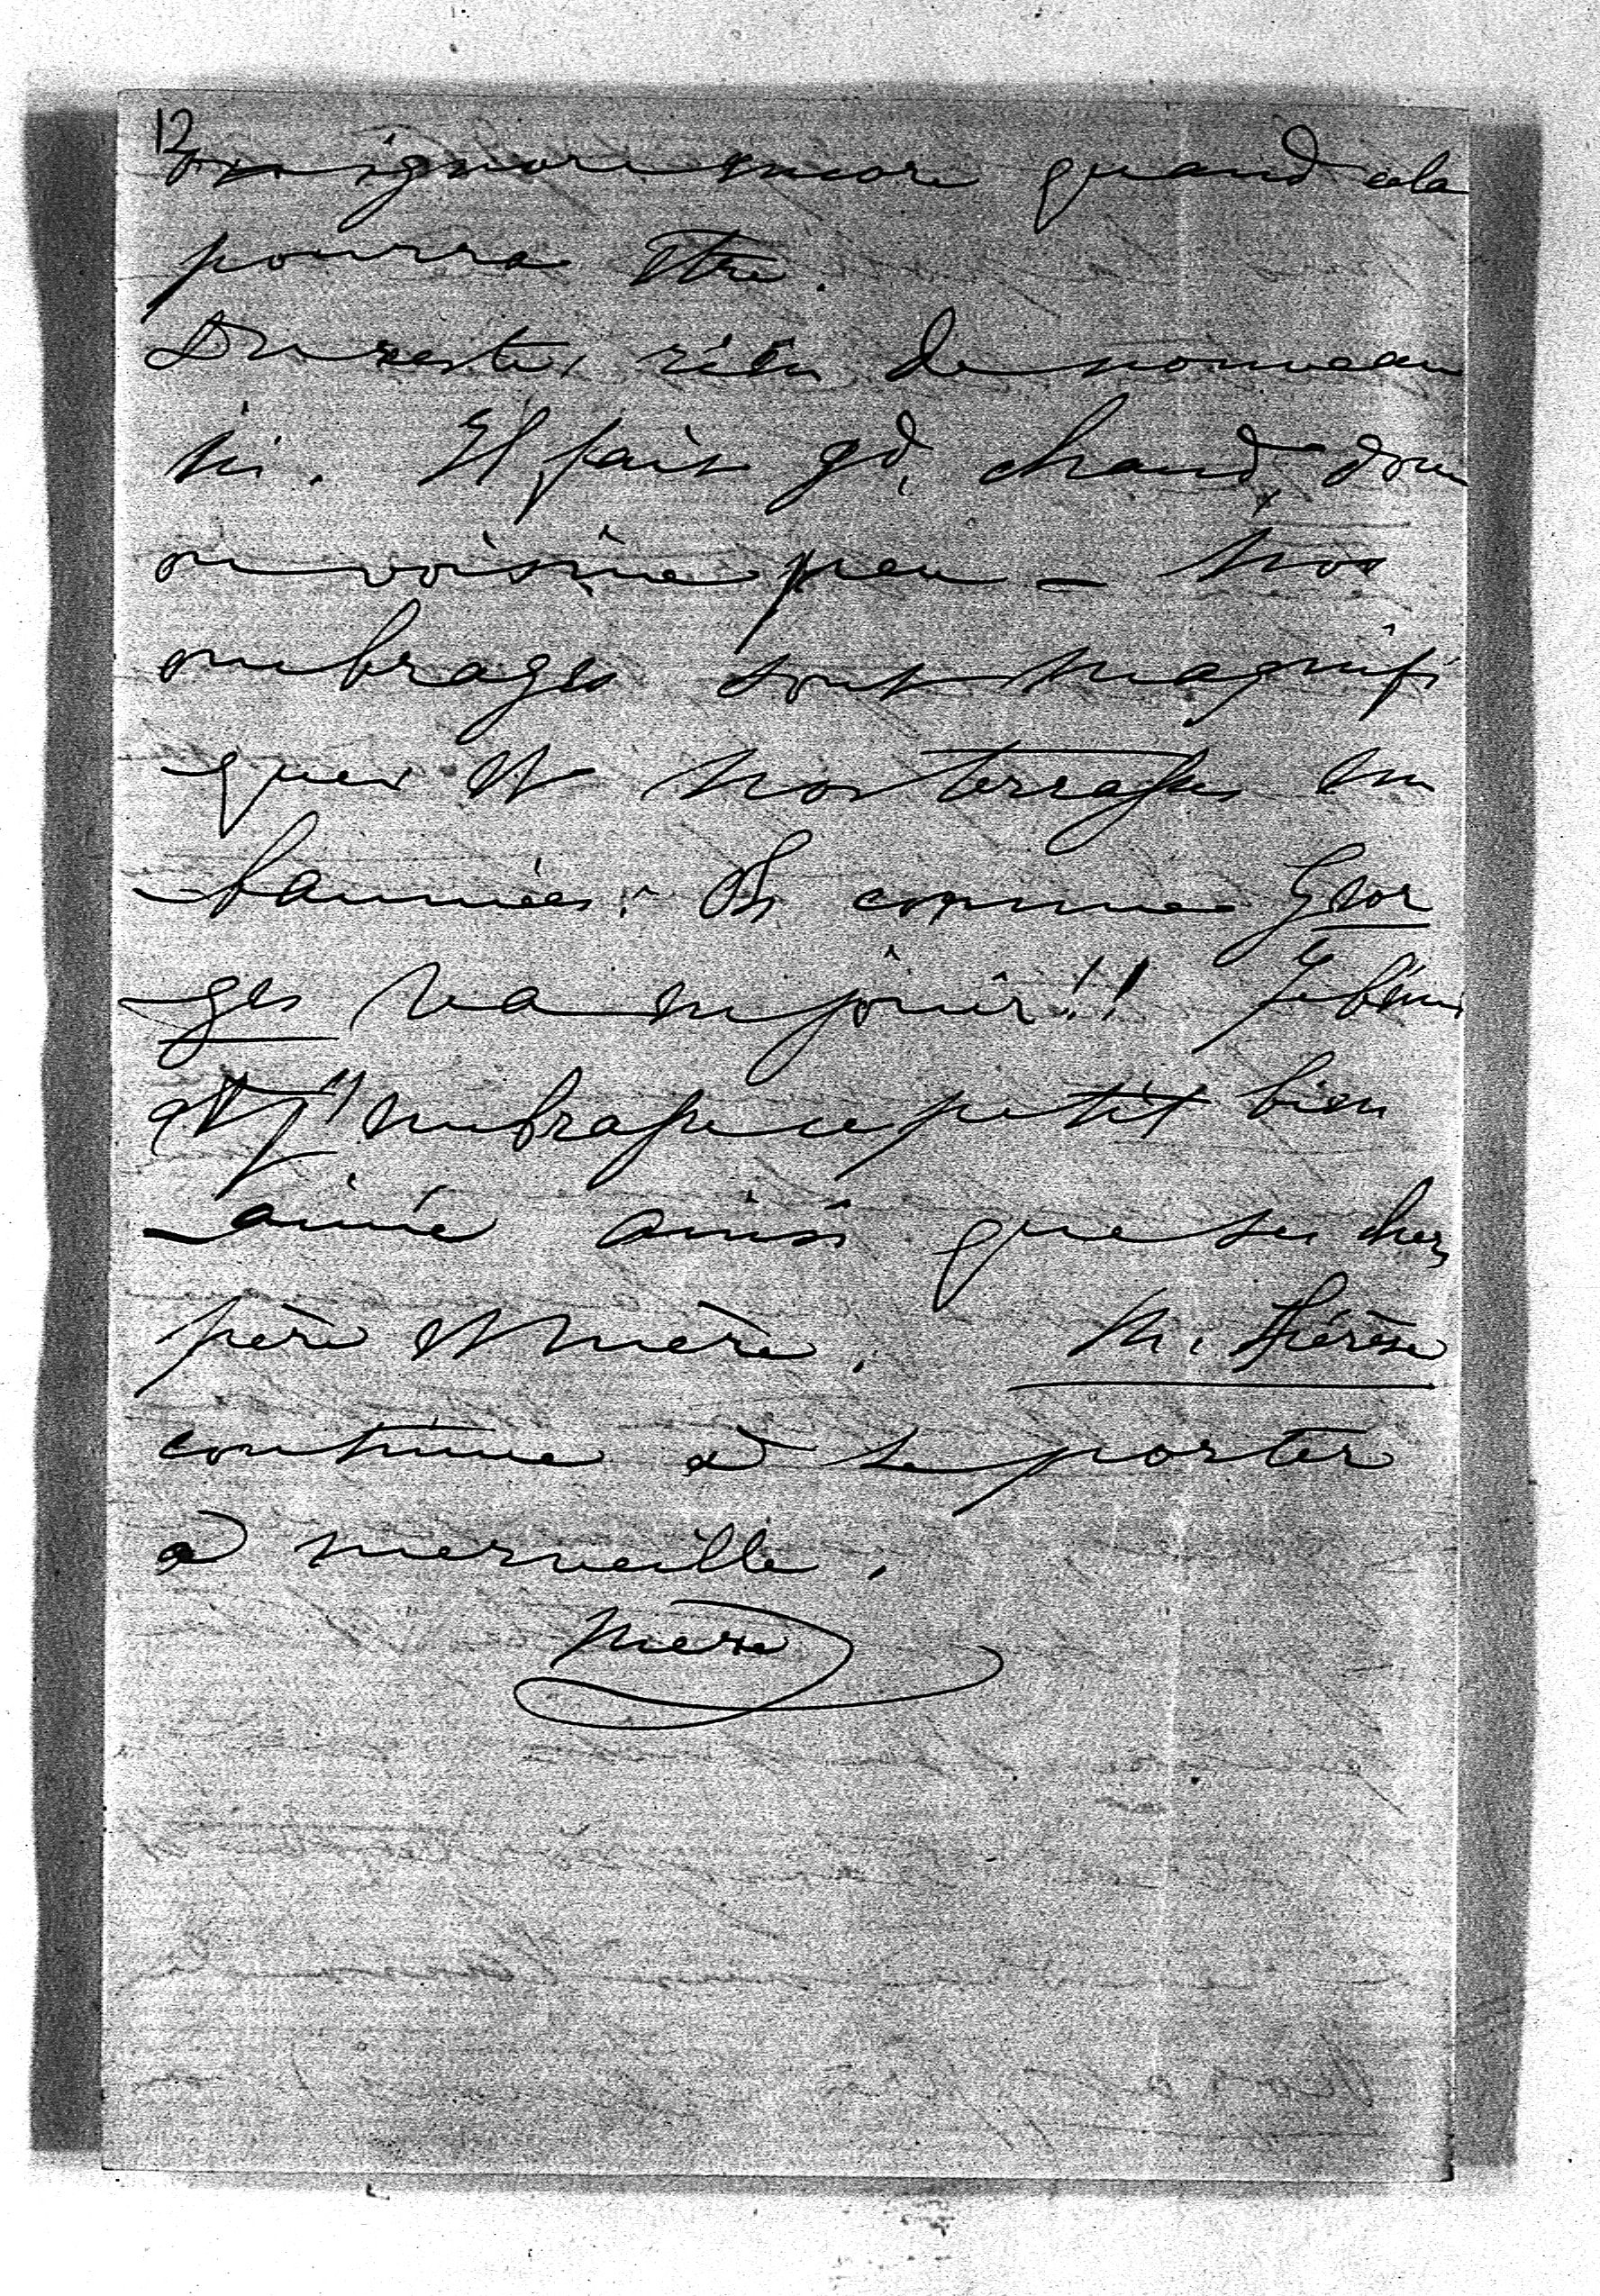 12
on ignore encore quand cela
pourra être.
Du reste, rien de nouveau
ici. Il fait gd, chaud, donc
on voisine peu - Nos
ombrages sont magnifi
ques et nos terrasses em
-baumées. Oh comme Geor
ges va en jouir!! Je bénis
et j'embrasse ce petit bien
-aimé ainsi que ses chers
père et mère. M. Thérèse
continue à se porter
à merveille.
Mère